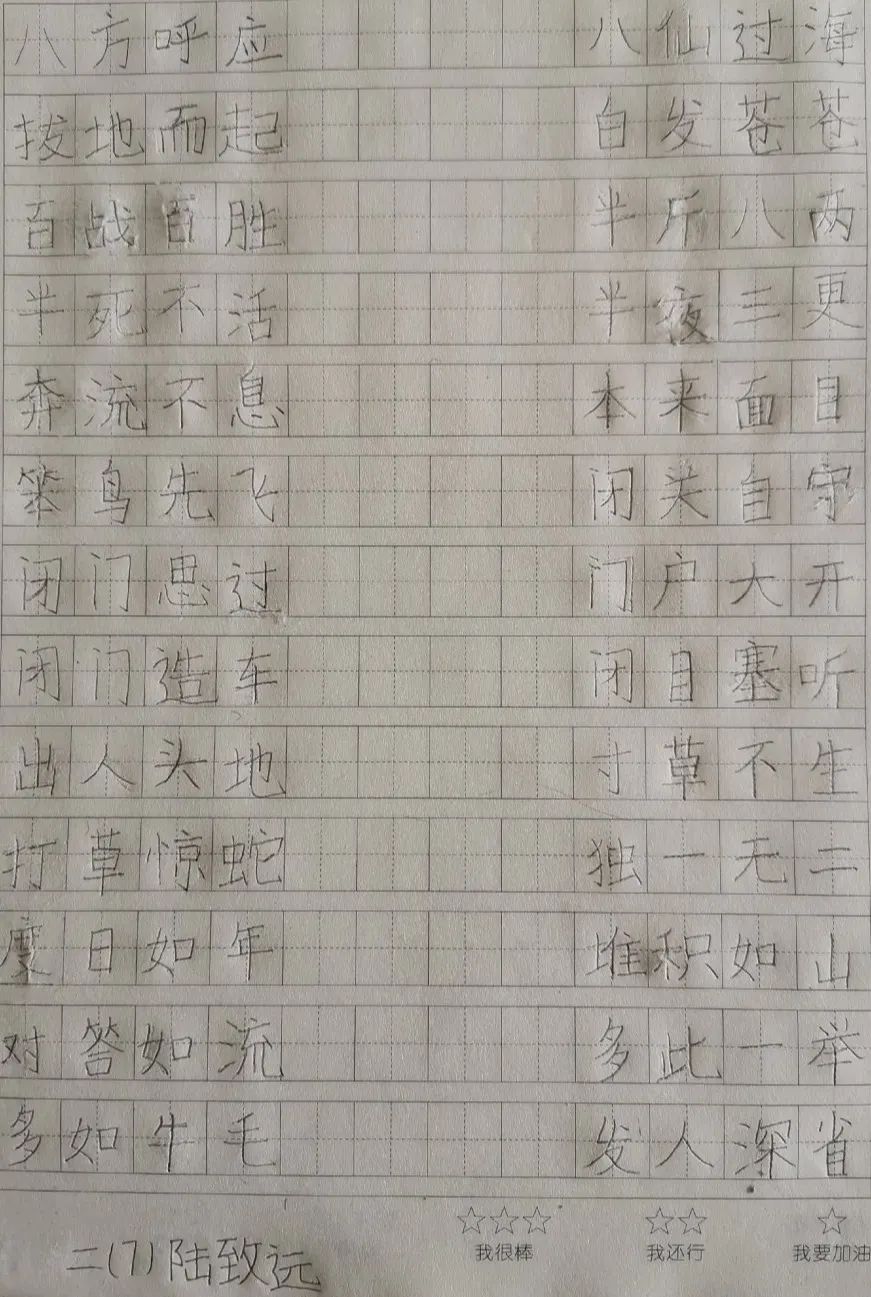 八方呼应 八仙过海
拔地而起 白发苍苍
百战百胜 半斤八两
半死不活 半夜三更
奔流不息 本来面目
笨鸟先飞 闭关自守
闭门思过 门户大开
闭门造车 闭目塞听
出人头地 寸草不生
打草惊蛇 独一无二
度日如年 堆积如山
对答如流 多此一举
多如牛毛 发人深省
☆☆☆ ☆☆ ☆
我很棒 我还行 我要加油
二(7)陆致远